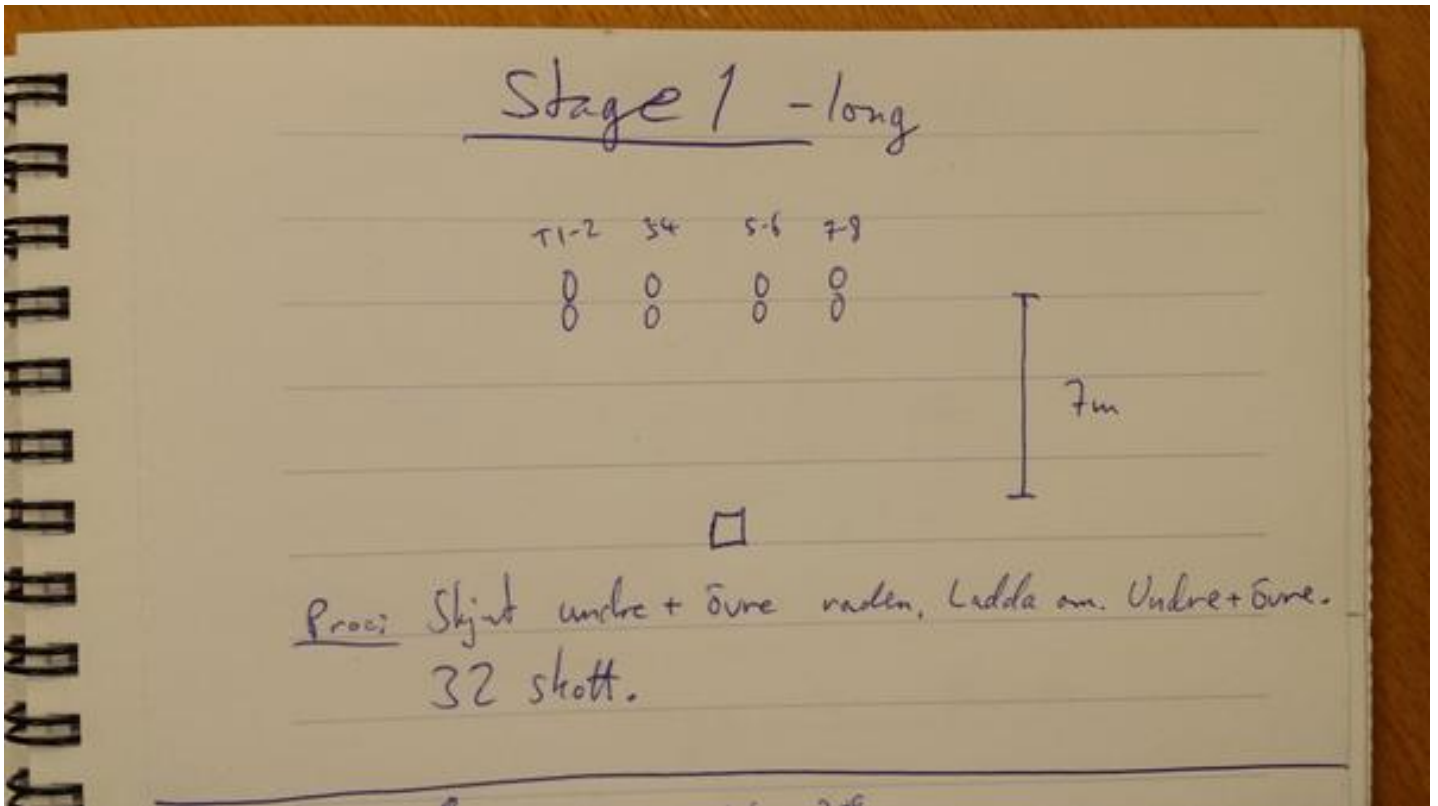 Stage 1 - long
T1-2 3-4 5-6 7-8
7m
Proc: Skjut undre + övre raden. Ladda om. Undre + övre.
32 skott.